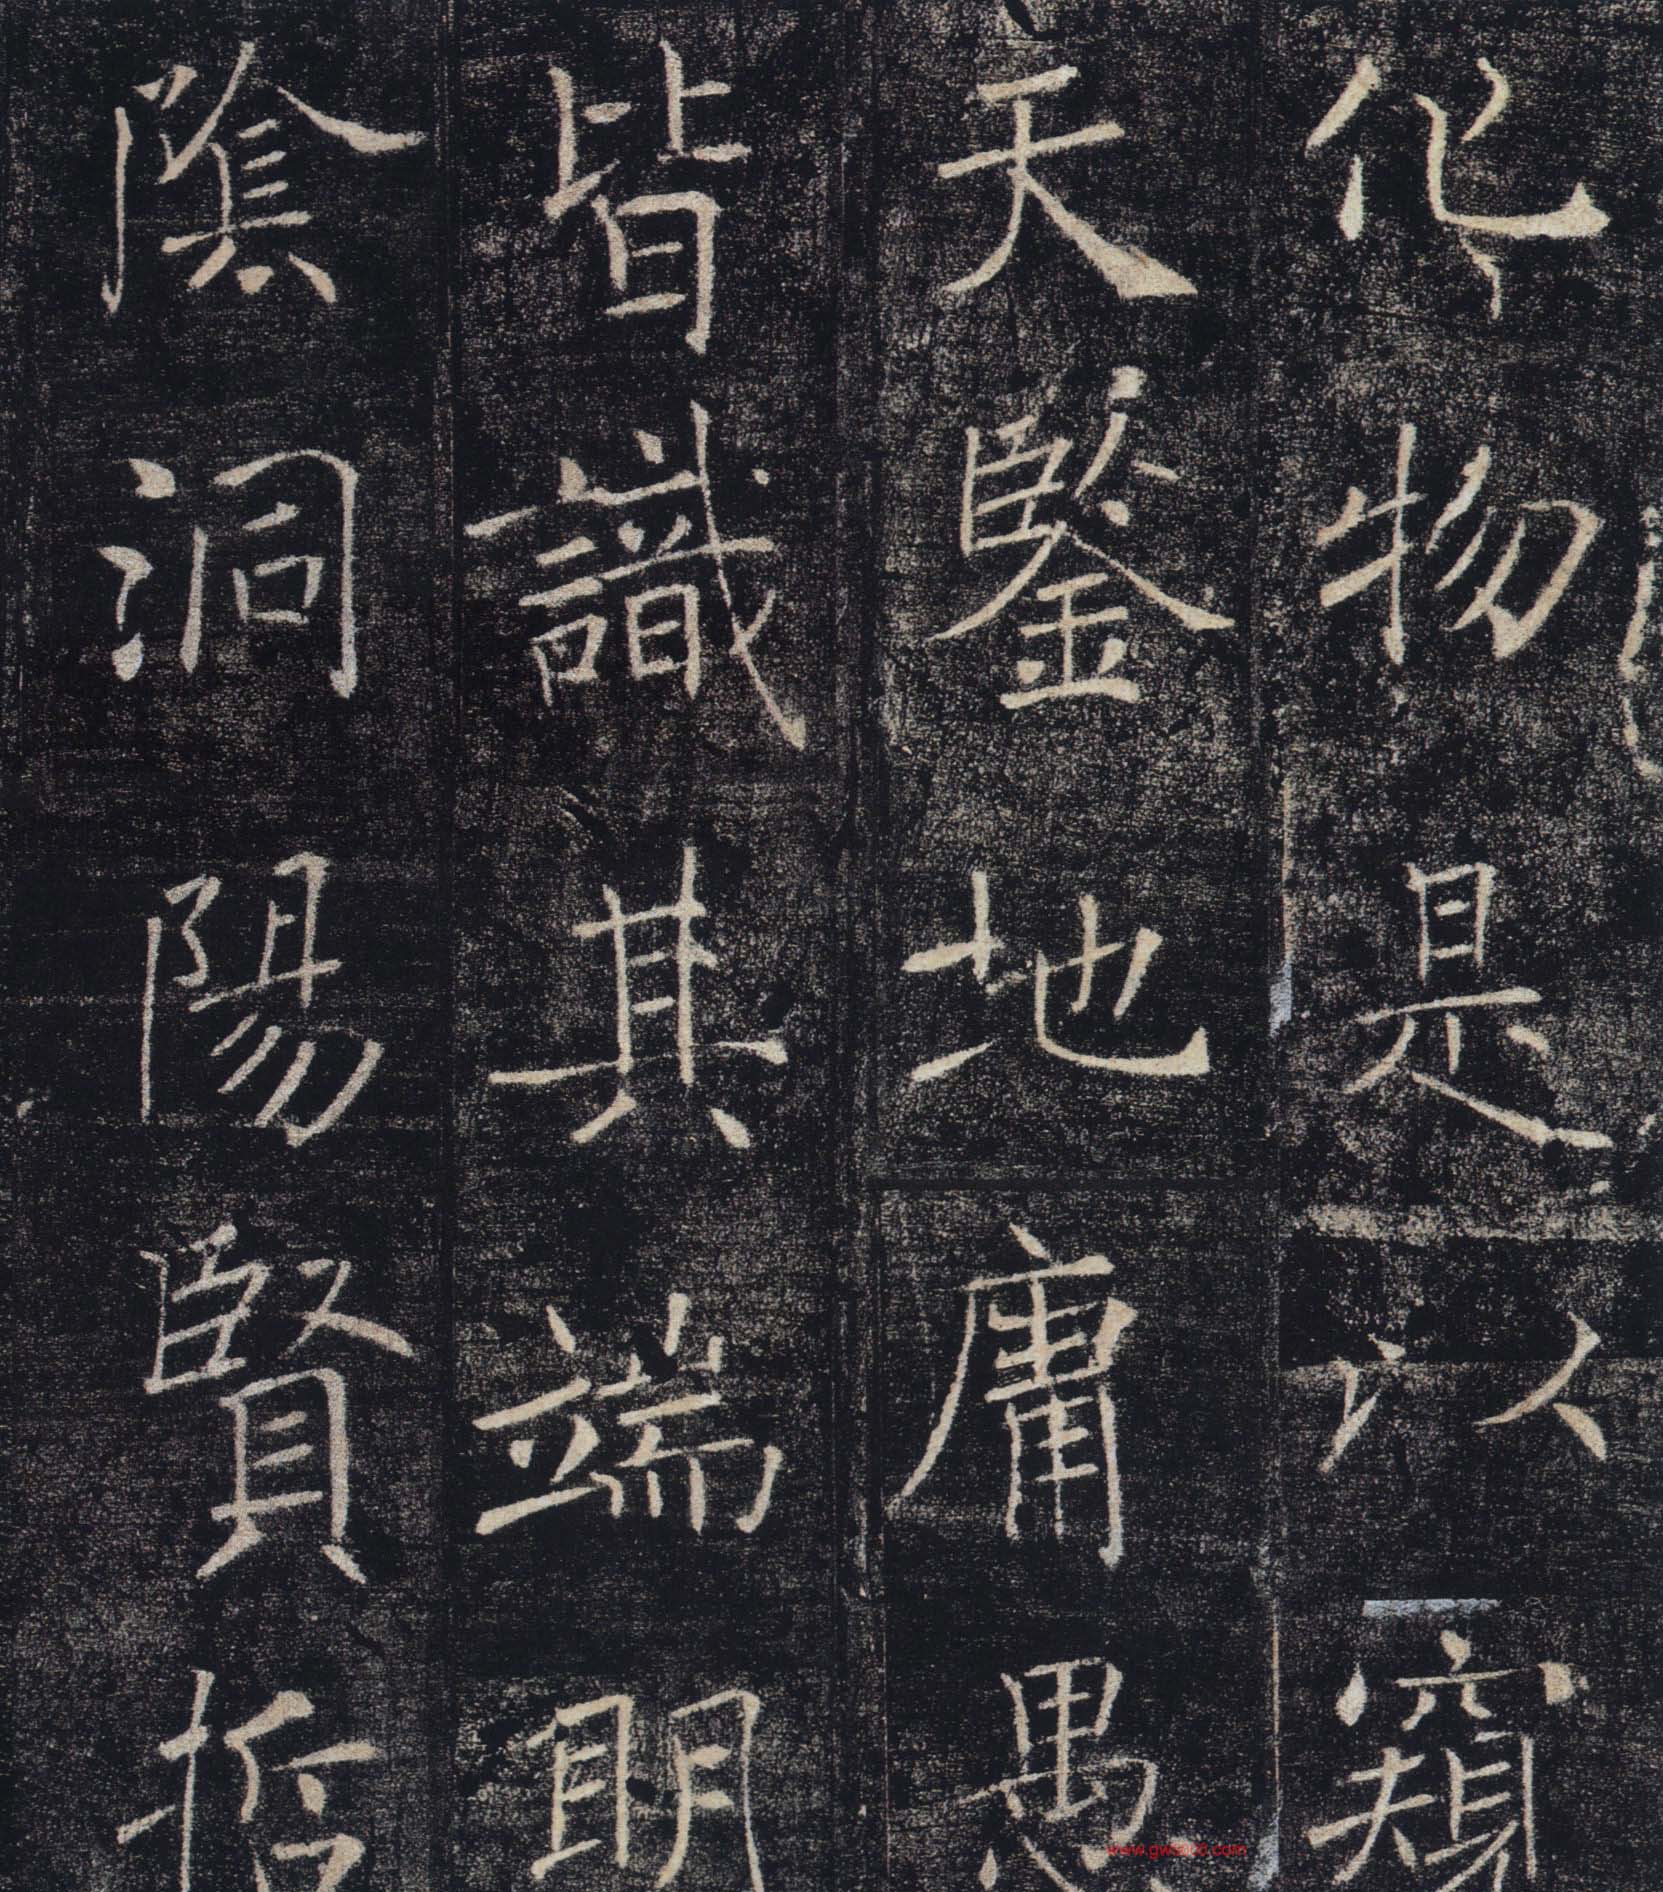 化物是以窺
天鑒地庸愚
皆識其端明
陰洞陽賢哲